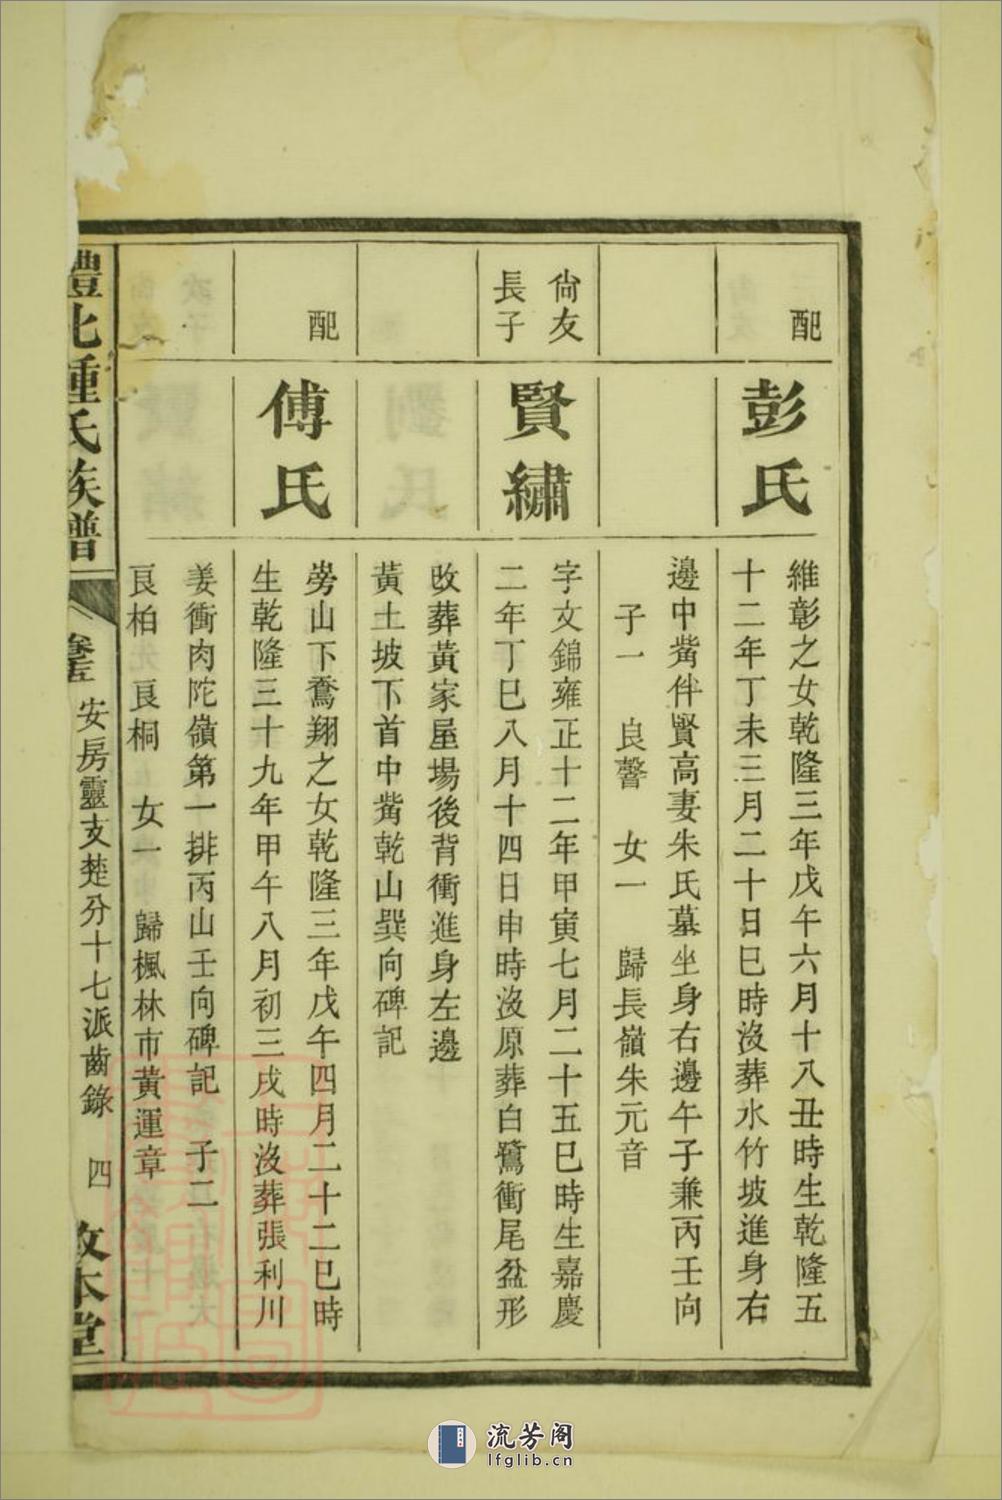 配
彭氏
維彰之女乾隆三年戊午六月十八丑時生乾隆五
十二年丁未三月二十日巳時沒葬水竹坡進身右
邊中觜伴賢高妻朱氏墓坐身右邊午子兼丙壬向
子一 良謦 女一 歸長嶺朱元音
尙友
長子
賢繡
字文錦雍正十二年甲寅七月二十五巳時生嘉慶
二年丁巳八月十四日申時沒原葬白鷺衝尾盆形
改葬黃家屋場後背衝進身左邊
黃土坡下首中觜乾山巽向碑記
配
傅氏
塝山下鴌翔之女乾隆三年戊午四月二十二巳時
生乾隆三十九年甲午八月初三戌時沒葬張利川
姜衝肉陀嶺第一排丙山壬向碑記 子二
良柏 良桐 女一 歸楓林市黃運章
北 氏族譜
卷五 安房靈支楚分十七派齒錄 四
本堂
流芳阁
lfglib.cn